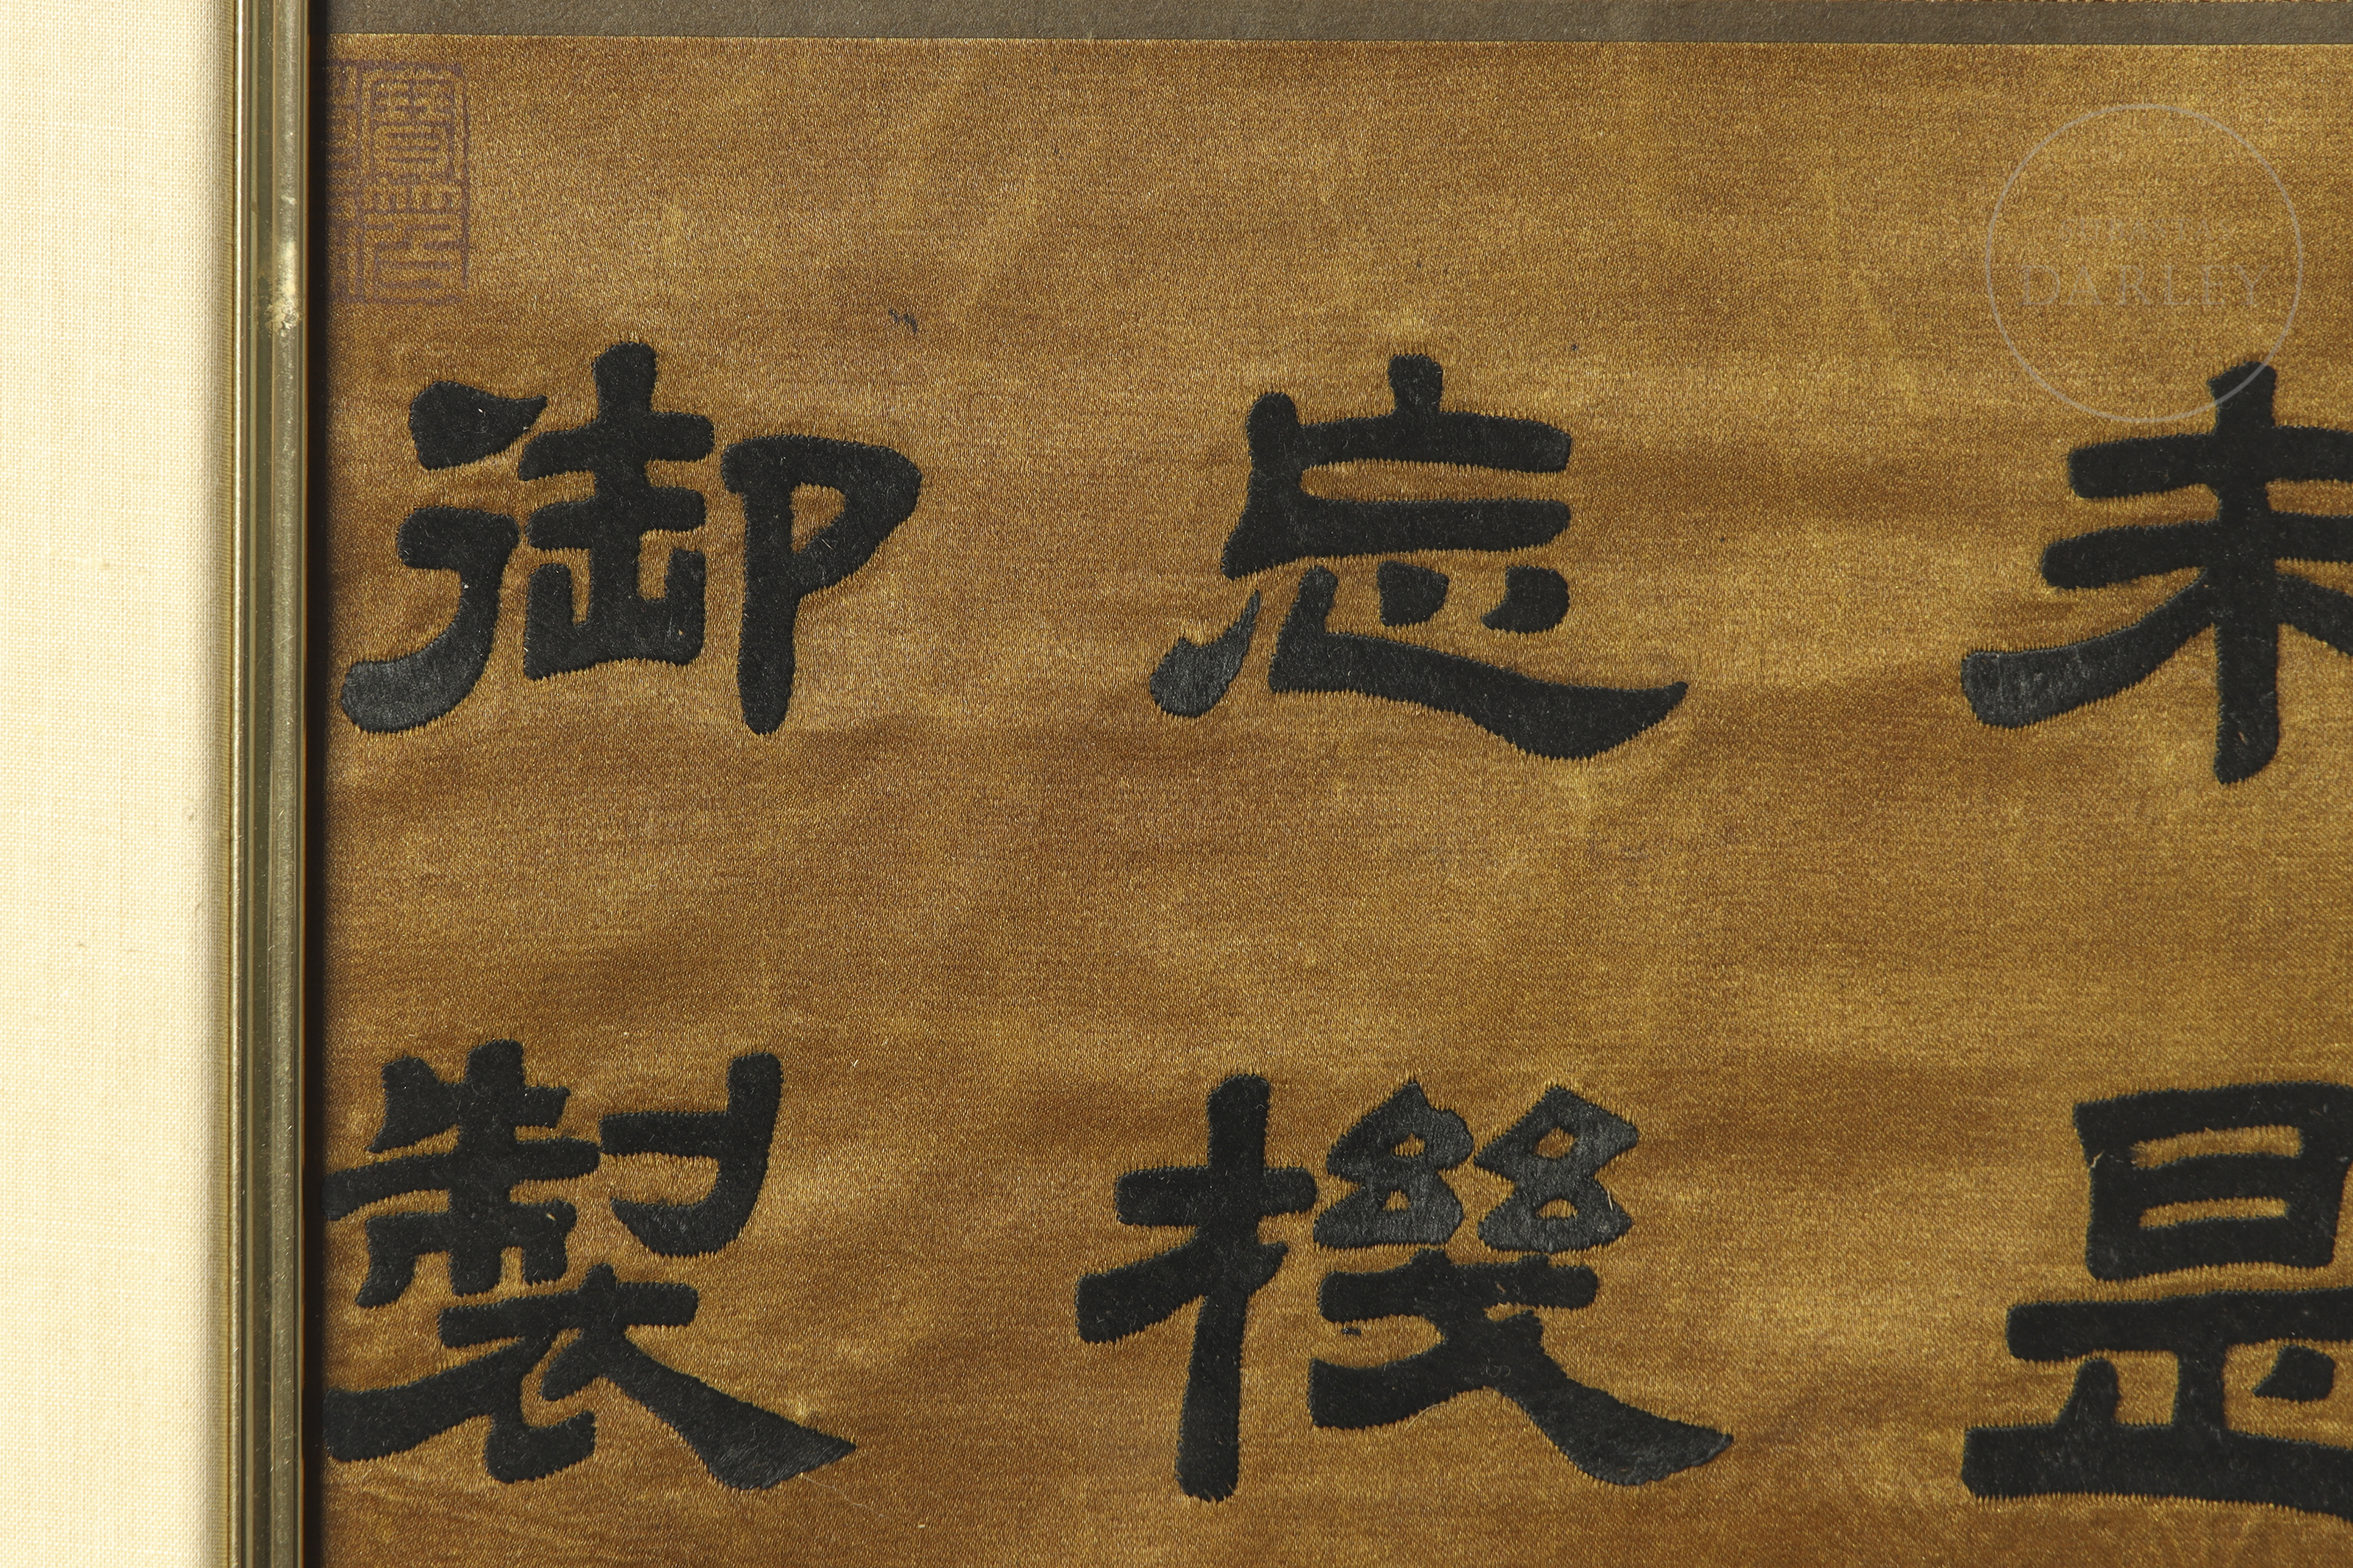 未是
忘機
御製
DARLEY